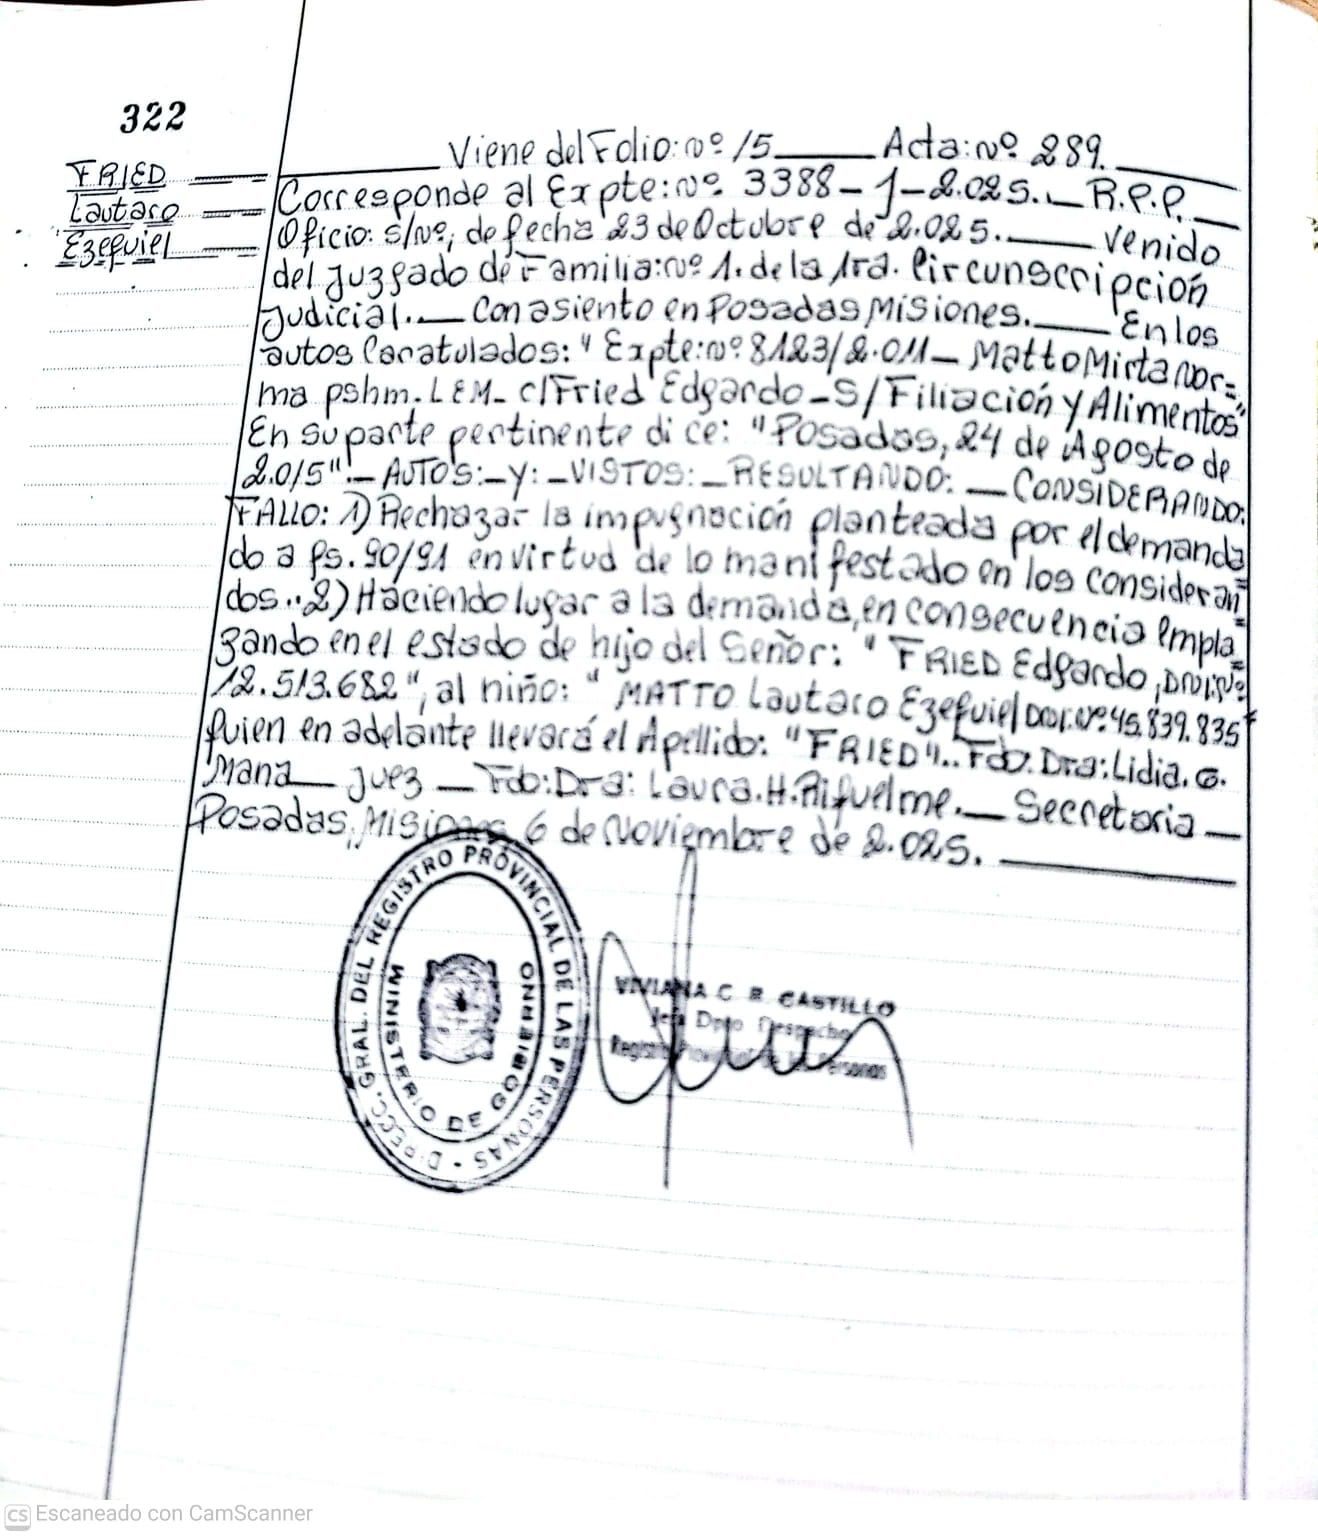 322
FRIED
Lautaro
Ezequiel
Viene del Folio: nº 15 Acta: nº 289.
Corresponde al Expte: nº 3388-J-2.025. R.P.P.
Oficio: s/nº, de fecha 23 de Octubre de 2.025. venido
del Juzgado de Familia: nº 1. de la 1ra. Circunscripción
Judicial. Con asiento en Posadas Misiones. En los
autos Caratulados: "Expte: nº 8123/2.011 - Matto Mirta Nor=
ma pshm. L E M- c/Fried Edgardo - S/Filiación y Alimentos"
En su parte pertinente dice: "Posadas, 24 de Agosto de
2.015". - AUTOS: - y: - VISTOS: - RESULTANDO: - CONSIDERANDO:
FALLO: 1) Rechazar la impugnación planteada por el demanda
do a fs. 90/91 en virtud de lo manifestado en los consideran=
dos.. 2) Haciendo lugar a la demanda, en consecuencia empla=
zando en el estado de hijo del Señor: "FRIED Edgardo, DNI: Nº
12.513.682", al niño: "MATTO Lautaro Ezequiel DNI. nº. 45.839.835"
quien en adelante llevará el Apellido: "FRIED".. Fdo. Dra: Lidia. G.
Mana Juez - Fdo: Dra: Laura. H. Riquelme. Secretaria
Posadas, Misiones, 6 de Noviembre de 2.025.
DIRECC. GRAL. DEL REGISTRO PROVINCIAL DE LAS PERSONAS
MINISTERIO DE GOBIERNO
VIVIANA C. R. CASTILLO
Jefa Dpto Despacho
Registro Provincial de las Personas
CS Escaneado con CamScanner